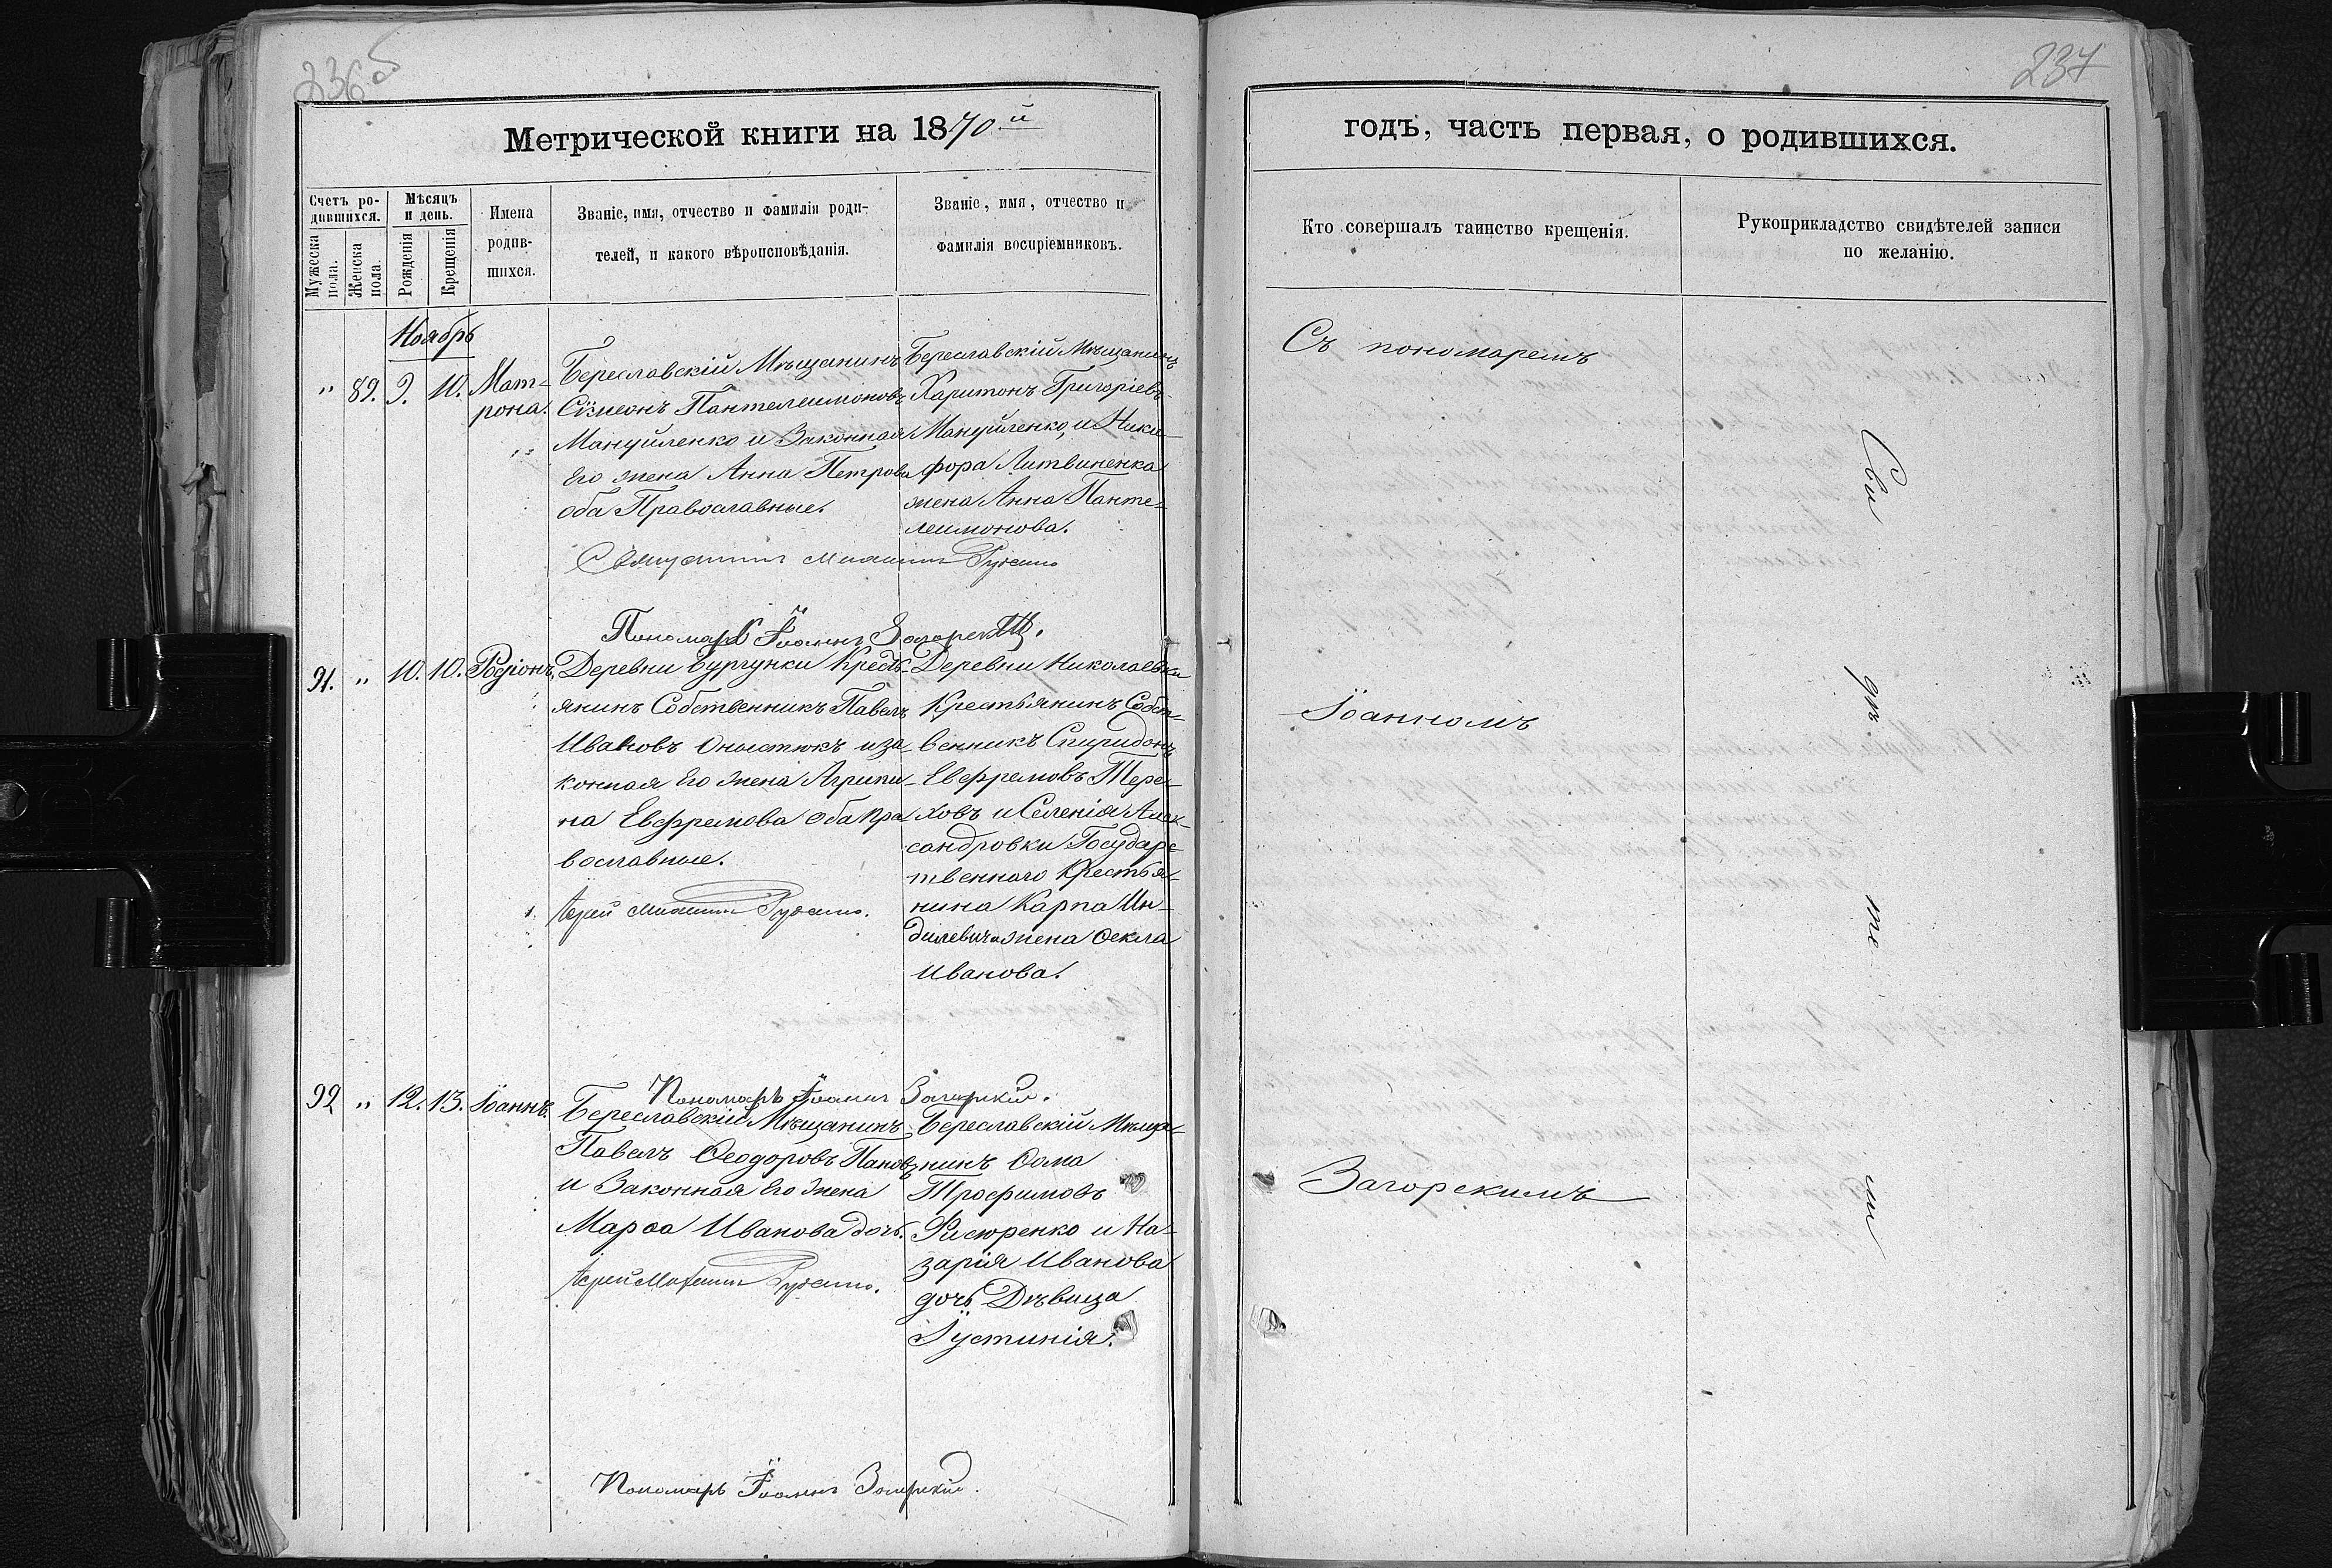 236 об
Метрической книги на 1870й
Счетъ ро-
дившихся.
Мужеска пола.
Женска пола.
Мѣсяцъ
и день.
Рожденія
Крещенія
Имена
родив-
шихся.
Званіе, имя, отчество и фамилія роди-
телей, и какого вѣроисповѣданія.
Званіе, имя, отчество и
фамилія воспріемниковъ.
Ноябрь
" 89. 9. 10. Мат-
рона.
Береславскій Мѣщанинъ
Сѵмеонъ Пантелеимоновъ
Мануйленко и Законная
Его жена Анна Петрова
оба Православные.
Береславскій Мѣщанинъ
Харитонъ Григоріевъ
Мануйленко, и Ники-
фора Литвиненка
жена Анна Панте-
леимонова.
Пономарь Іоаннъ Загорскій.
91. " 10. 10. Родіонъ,
Деревни Бургунки Кресть-
янинъ Собственникъ Павелъ
Ивановъ Оныстюкъ и за-
конная Его жена Агрипи-
на Евфремова Оба Пра-
вославные.
Іерей
Деревни Николаевки
Крестьянинъ Собст-
венникъ Спиридонъ
Евфремовъ Тере-
ховъ и Селенія Алек-
сандровки Государс-
твеннаго Крестья-
нина Карпа
жена Ѳекла
Иванова.
Пономарь Іоаннъ Загорскій.
92 " 12. 13. Іоаннъ.
Береславскій Мѣщанинъ
Павелъ Ѳеодоровъ Пановъ
и Законная Его Жена
Марѳа Иванова дочь.
Іерей
Береславскій Мѣща-
нинъ Ѳома
Трофимовъ
и На-
зарія Иванова
дочь Дѣвица
Іустинія.
Пономарь Іоаннъ Загорскій.
237
годъ, часть первая, о родившихся.
Кто совершалъ таинство крещенія.
Рукоприкладство свидѣтелей записи
по желанію.
Съ пономаремъ
Іоанномъ
Загорскимъ